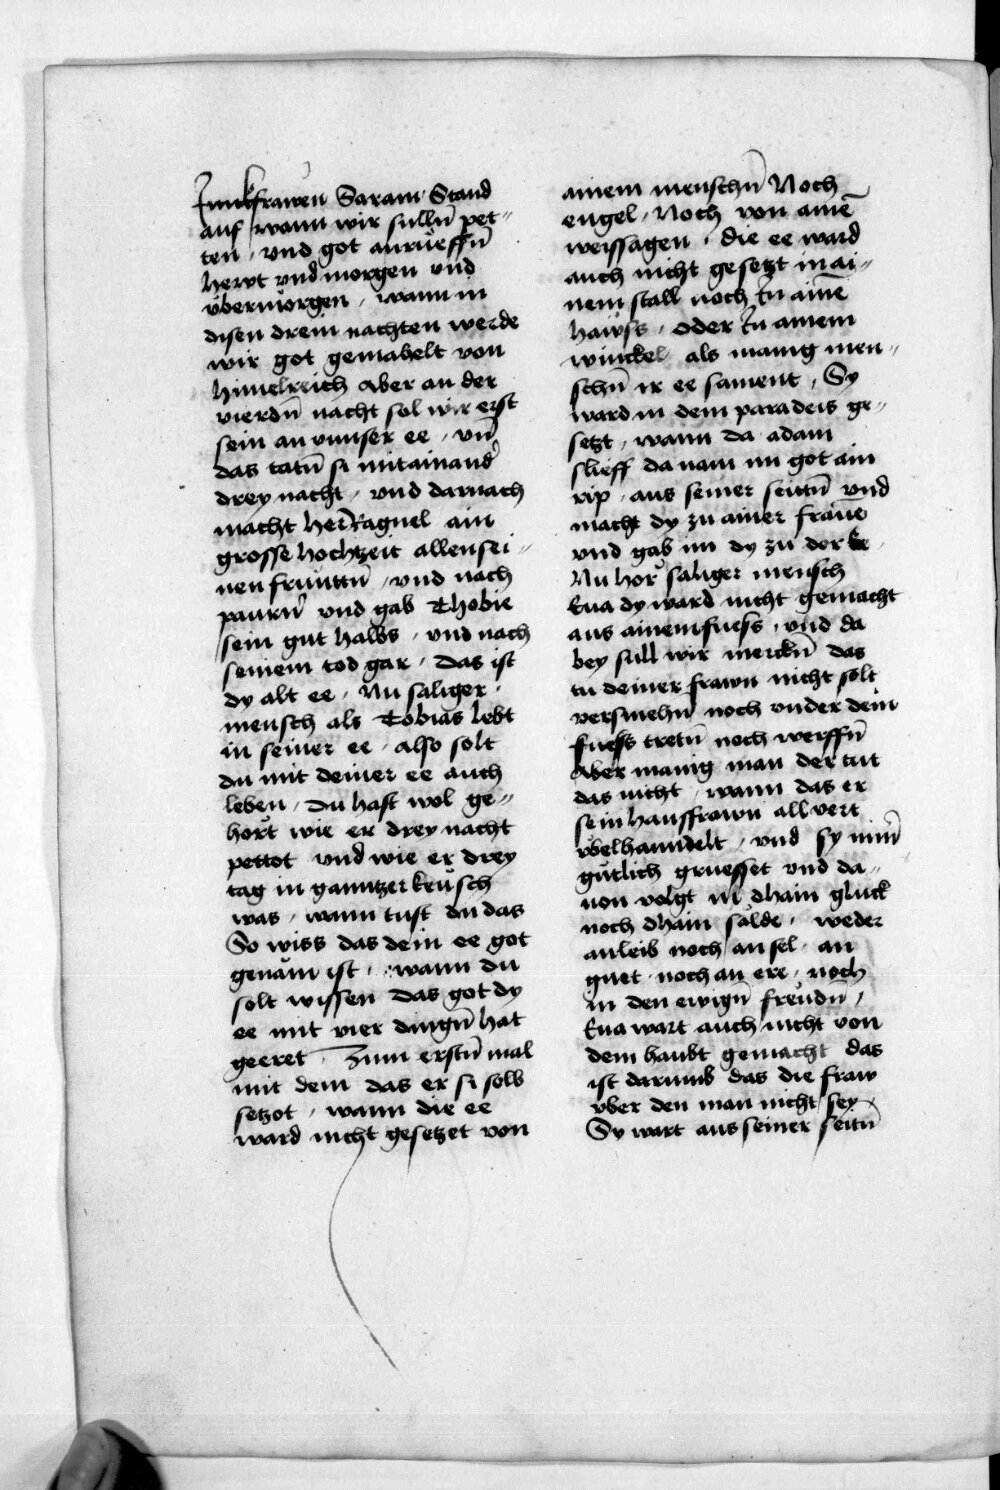 Junkfrawen Saram Stand
auf wann wir sulln̄ pet〃
ten, vnd got anrüeffn̄
hewt vnd morgen vnd
vbermorgen, wann in
disen drein nachten werde
wir got gemahelt von
himelreich Aber an der
vierdn̄ nacht sol wir erst
sein an vnnser ee, vn̄
das tatn̄ si mitainand͛
drey nacht, vnd darnach
macht her Raguel ain
grosse hochtzeit allen sei〃
nen frünttn̄, vnd nach
paurn̄ vnd gab Thobie
sein gut halbs, vnd nach
seinem tod gar, das ist
dy alt ee, Nu saliger
mensch als Tobias lebt
in seiner ee, also solt
du mit deiner ee auch
leben, Du hast wol ge〃
hört wie er drey nacht
pettot vnd wie er drey
tag in ganntzer keüsch
was, wann tust du das
So wiss das dein ee got
genäm ist, wann du
solt wissen das got dy
ee mit vier dingn̄ hat
geeret Zum erstn̄ mal
mit dem das er si selb
setzot, wann die ee
ward nicht gesetzet von
ainem menschn̄ Noch
engel, Noch von aine̅
weissagen, die ee ward
auch nicht gesetzt in ai〃
nem stall noch In aine̅
hawss, oder In ainem
winckel als manig men〃
schn̄ ir ee sament, Sy
ward in dem paradeis ge〃
setzt, wann da adam
slieff da nam im got ain
rip, aus seiner seittn̄ vnd
macht dy zu ainer frawe̅
vnd gab im dy zu der ee
Nu hör saliger mensch
Eua dy ward nicht gemacht
aus ainem fuess, vnd da
bey sull wir merckn̄ das
tu deiner frawn nicht solt
versmehn̄ noch vnder dein
fuess tretn̄ noch werffn̄
Aber manig man der tut
das nicht, wann das er
sein hausfrawn all vert
vbelhanndelt, vnd sy nim̄
gütlich gruesset vnd da〃
uon volgt im dhain gluck
noch dhain sälde, weder
an leib noch an sel, an
guet, noch an ere, noch
in den ewign̄ freüdn̄,
Eua wart auch nicht von
dem haubt gemacht das
ist darumb das die fraw
vber den man nicht sey,
Sy wart aus seiner seitn̄